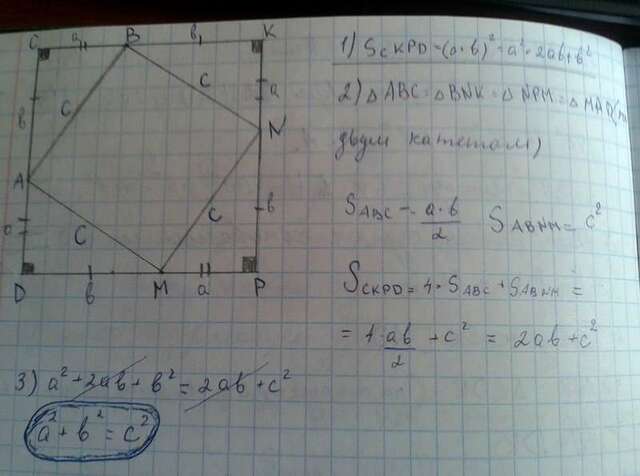 C a B b K
b c c a
A N
a c c b
D b M a P
1) S CKPD = (a+b)² = a² + 2ab + b²
2) △ABC = △BNK = △NPM = △MAD (по
двум катетам)
S ABC = a·b/2 S ABNM = c²
S CKPD = 4·S ABC + S ABNM =
= 4·ab/2 + c² = 2ab + c²
3) a² + 2ab + b² = 2ab + c²
a² + b² = c²